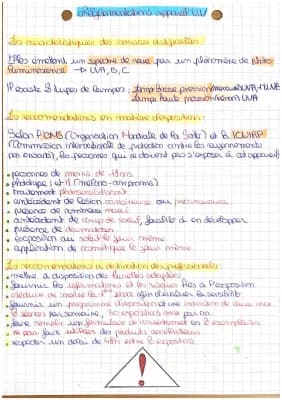 Réglementations appareil UV
Les caractéristiques des sources artificielles
Elles émettent un spectre de raie par un phénomène de photo
luminescence → UVA, B, C
Il existe 2 types de lampes : lampe Basse pression (mercure) UVA + UVB
Lampe haute pression UVA
Les recommandations en matière d'exposition :
Selon l'OMS (Organisation Mondiale de la Santé) et ICNIRP
(Commission internationale de protection contre les rayonnements
non ionisants), les personnes qui ne doivent pas s'exposer à cet appareil
• personnes de moins de 18 ans
• phototype I et II
• traitement photosensibilisant
• antécédent de lésion cancéreuse ou précancéreuse
• présence de nombreux naevi
• antécédent de coup de soleil, facilité à en développer
• présence de dermatoses
• exposition au soleil le jour même
• application de cosmétique le jour même
Les recommandations à destination des professionnels :
• mettre à disposition des lunettes adaptées
• fournir les informations et les risques liés à l'exposition
• réduire de moitié la 1ère séance afin d'évaluer la sensibilité
• fournir un programme d'exposition et une indication de durée max
• 2 séances par semaine, 30 expositions max par an
• faire remplir un formulaire de consentement en 2 exemplaires
• ne pas faire utiliser des produits accélérateurs
• respecter un délai de 48h entre 2 expositions
!